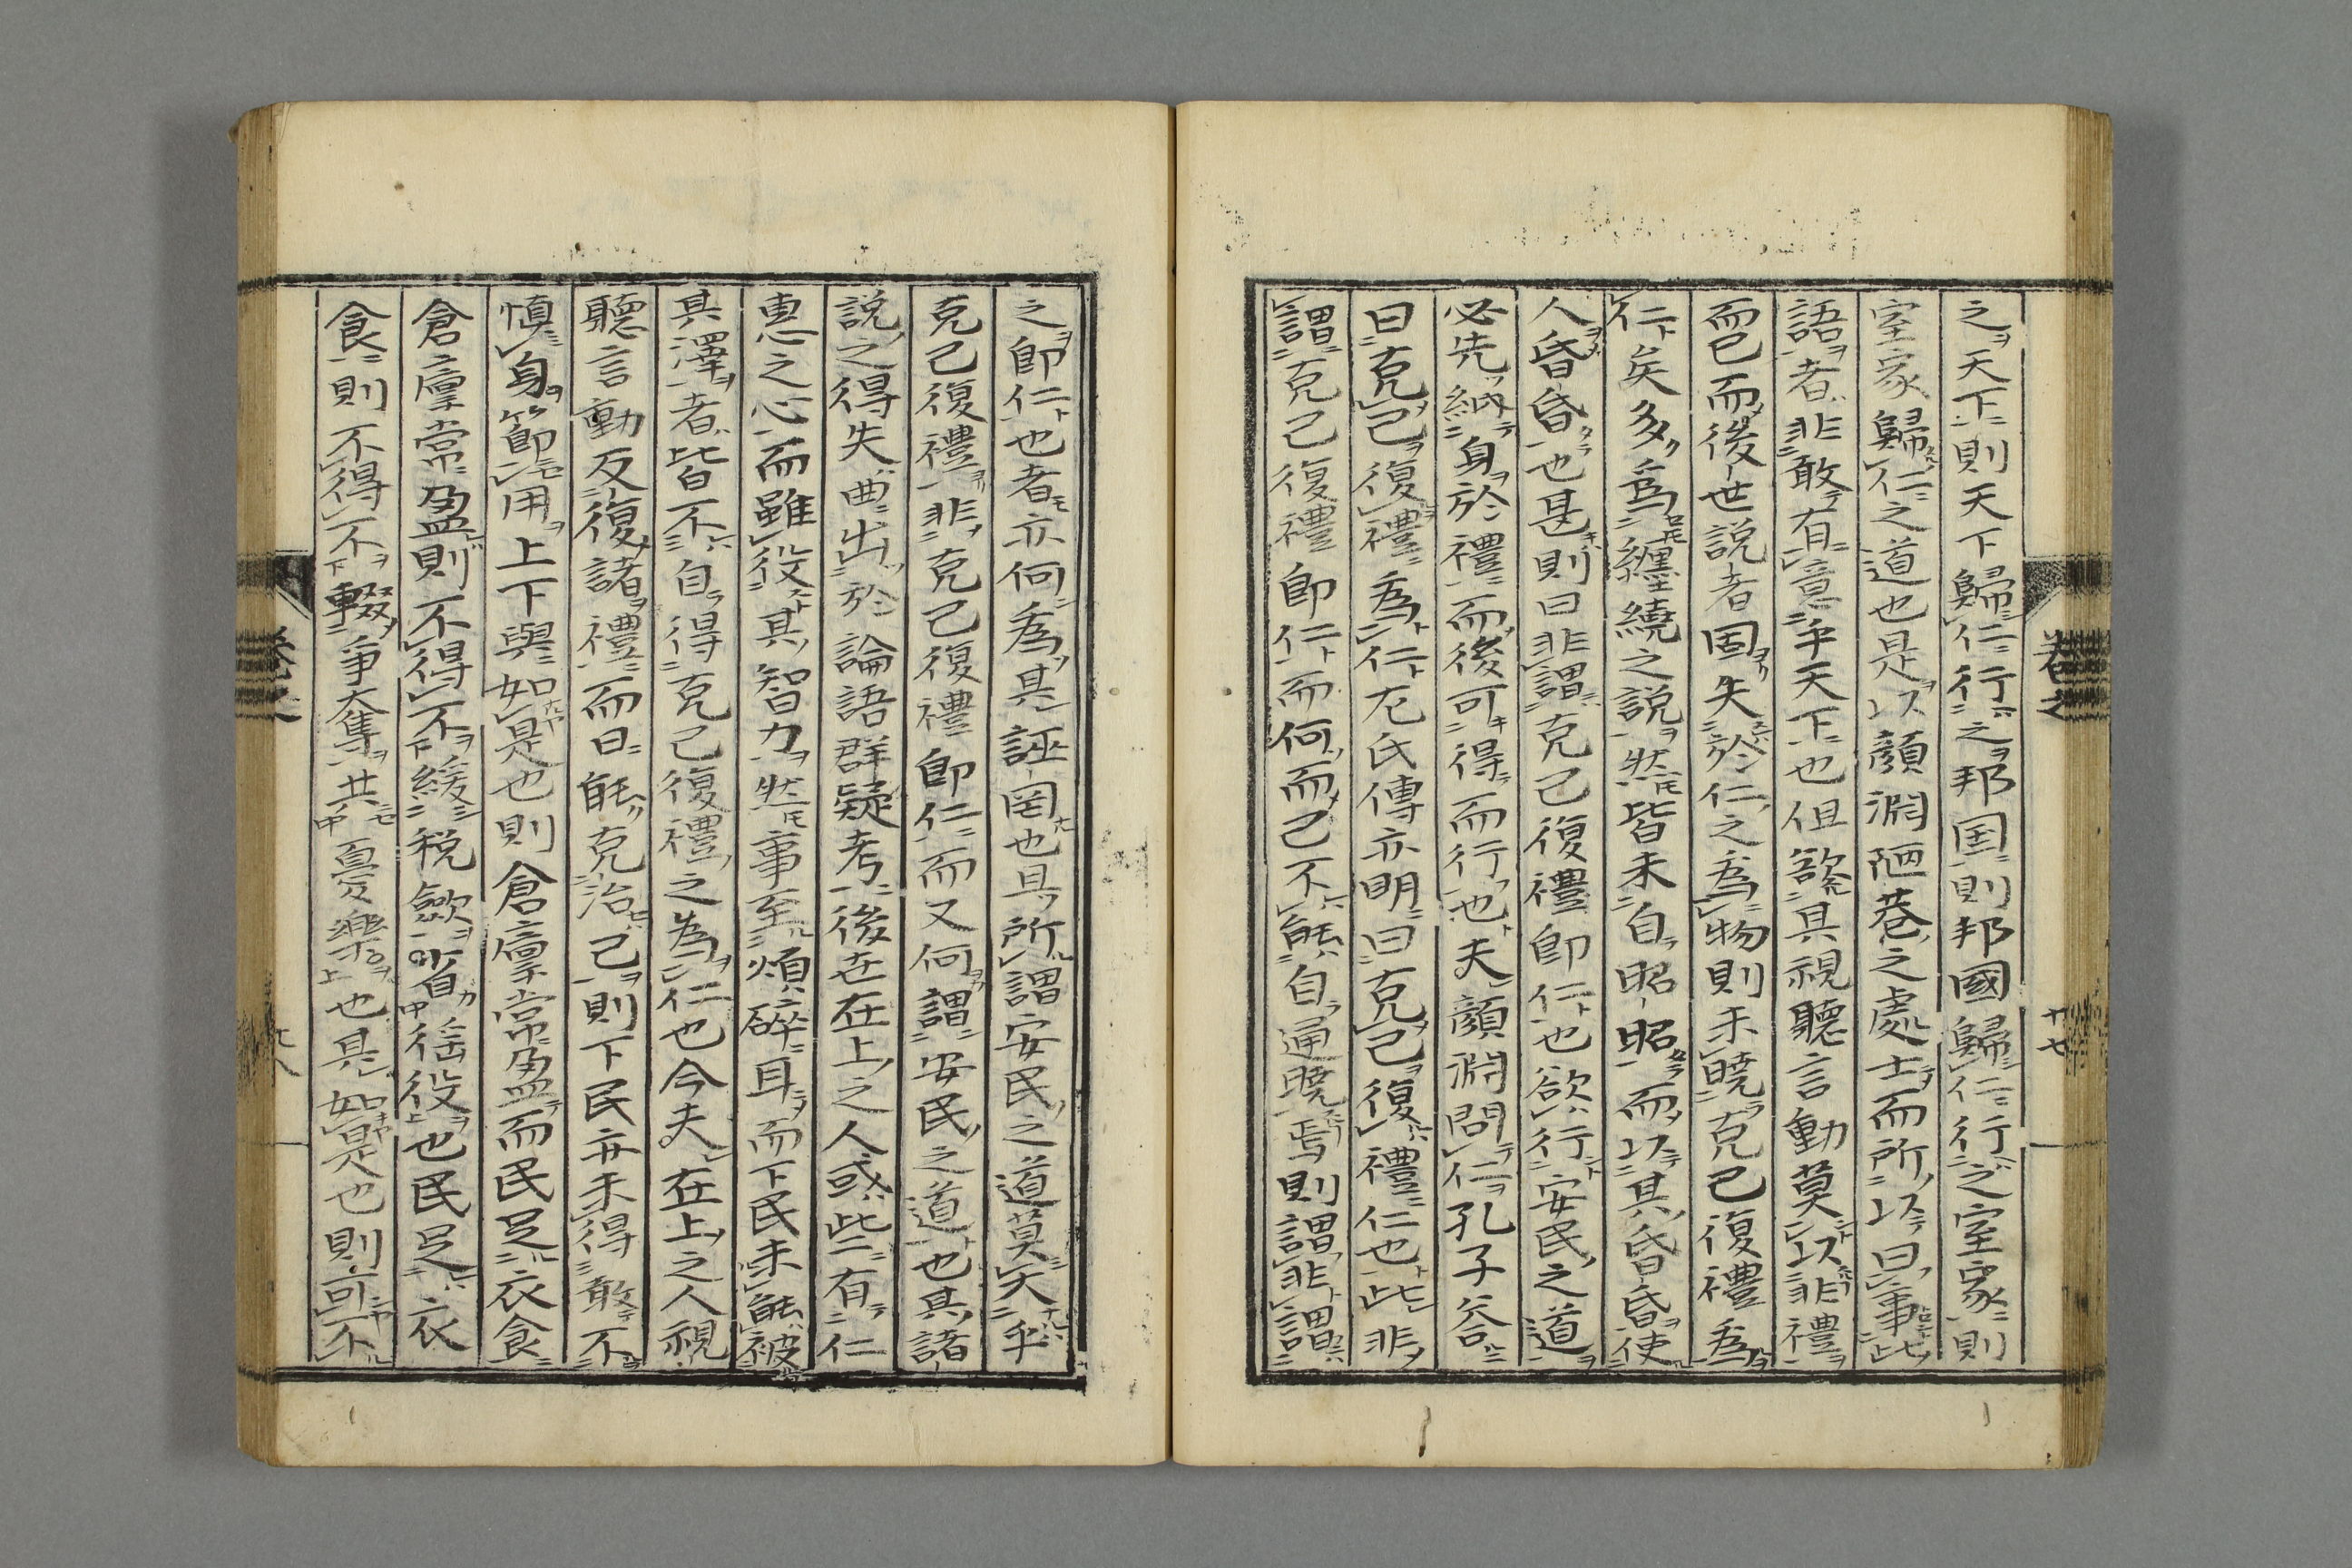 之天下則天下歸仁行之邦国則邦國歸仁行之室家則
室家歸仁之道也是以顔淵陋巷之處士而所以曰事此
語者非敢有意乎天下也但欲其視聽言動莫以非禮
而已而後世説者固失於仁之為物則未曉克己復禮為
仁矣多為纒繞之説然皆未自昭昭而以其昏昏使
人昏昏也甚則曰非謂克己復禮卽仁也欲行安民之道
必先納身於禮而後可得而行也夫顔淵問仁孔子答
曰克己復禮為仁左氏傳亦明曰克己復禮仁也此非
謂克己復禮卽仁而何而已不能自通曉焉則謂非謂
卷之
十七
之卽仁也者亦何為其誣罔也且所謂安民之道莫大乎
克己復禮非克己復禮卽仁而又何謂安民之道也其諸
説之得失典出於論語群疑考後世在上之人或些有仁
惠之心而雖役其智力然事至煩碎耳而下民未能被
其澤者皆不自得克己復禮之為仁也今夫在上之人視
聽言動反復諸禮而曰能克治己則下民亦未得敢不
愼身節用上下與如是也則倉廩常盈而民足衣食
倉廩常盈則不得不緩税斂省徭役也民足衣
食則不得不輟爭奪共憂樂也其如是也則可不
卷之
十八